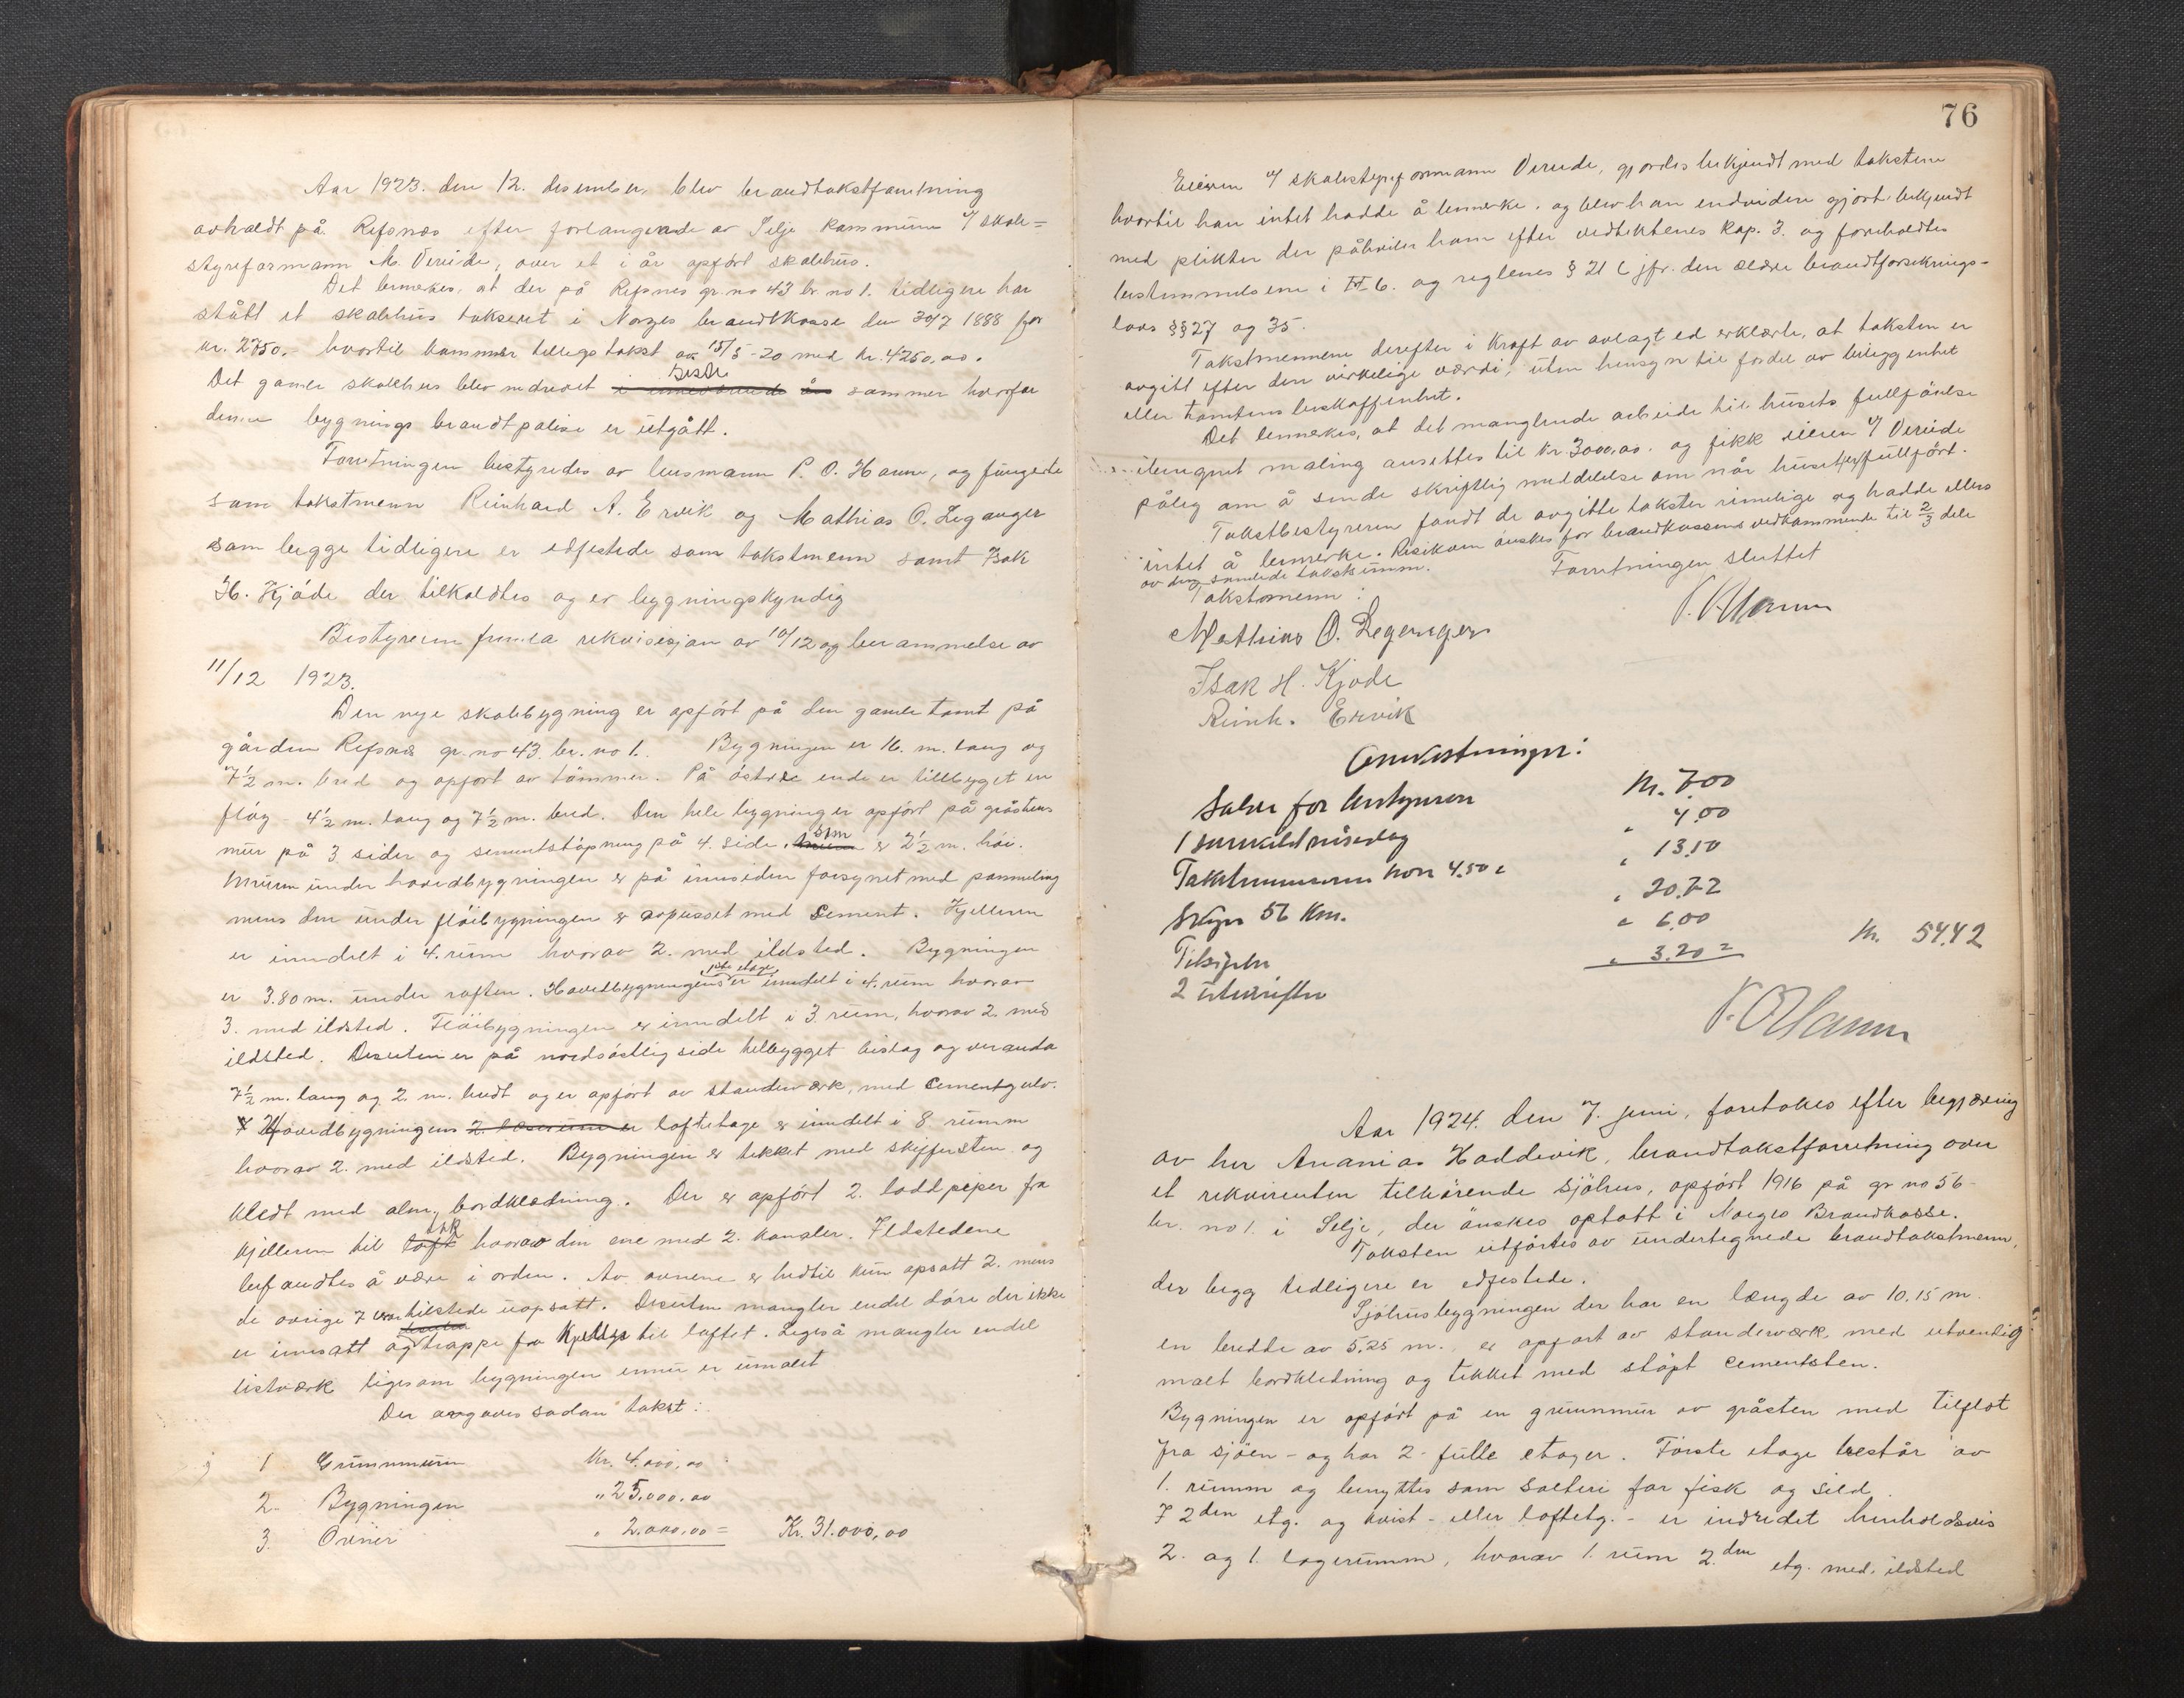 Aar 1923. den 12. desember, blev brandtakstforretning
avholdt på Refsnæs efter forlangende av Selje kommune v/ skole=
styreformann M. Vereide, over et i år opført skolehus.
Det bemerkes, at der på Refsnes gr. no 43 br. no 1. tidligere har
stått et skolehus taksert i Norges brandtkasse den 30/7 1888 for
kr. 2750.- hvortil kommer tillegstakst av 15/5-20 med kr. 4250,00.
Det gamle skolehus blev nedrevet sisste sommer hvorfor
denne bygnings brandtpolise er utgått.
Forretningen bestyredes av lensmann P. O. Hamn, og fungerte
som takstmenn Reinhard A. Ervik og Mathias O. Leganger
som begge tidligere er edfestede som takstmenn samt Isak
H. Kjøde der tilkaldtes og er bygningskyndig
Bestyreren frem la rekvisisjon av 10/12 og berammelse av
11/12 1923.
Den nye skolebygning er opført på den gamle tomt på
gården Refsnæs gr. no 43. br. no 1. Bygningen er 16. m. lang og
7½ m. bred og opført av tømmer. På østre ende er tillbyget en
fløy - 4½ m. lang og 7½ m. bred. Den hele bygning er opført på gråstens
mur på 3 sider og sementstøpning på 4. side, som er 2½ m. høi.
Muren under hovedbygningen er på innsiden forsynet med panneling
mens den under fløibygningen er avpusset med sement. Kjelleren
er inndelt i 4. rum hvorav 2. med ildsted. Bygningen
er 3.80 m. under raften. Hovedbygningens 1ste etage er inndelt i 4. rum hvorav
3. med ildsted. Fløibygningen er inndelt i 3. rum, hvorav 2. med
ildsted. Desuten er på nordøstlig side tilbygget bislag og veranda
7½ m. lang og 2. m. bredt og er opført av standerværk, med cementgulv.
Hovedbygningens 2. loftetage er inndelt i 8 rumm
hvorav 2. med ildsted. Bygningen er tekket med skiffersten og
kledt med alm. bordklædning. Der er opført 2. loddpiper fra
kjelleren til hvorav den ene med 2. kanaler. Ildstedene
befandtes å være i orden. Av ovnene er hidtil kun opsatt 2. mens
de øvrige 7 var tilstede uopsatt. Desuten mangler endel døre der ikke
er innsatt og trappe fra kjeller til loftet. Legeså mangler endel
listværk ligesom bygningen ennu er umalet
Der avgaves sådan takst:
1 Grunnmuren Kr. 4.000,00
2. Bygningen " 25.000,00
3. Ovner " 2.000,00 = Kr. 31.000,00
76
Eieren v/ skolestyreformann Vereide, gjordes bekjendt med taksten
hvortil han intet hadde å bemerke. og blev han endvidere gjort bekjendt
med plikter der påhviler ham efter vedtektenes kap. 3. og foreholdtes
bestemmelsene i 6. og reglenes § 21 c jfr. den ældre brandtforsikrings-
lovs §§ 27 og 35.
Takstmennene derefter i kraft av avlagt ed erklærte, at taksten er
avgitt efter den virkelige værdi, uten hensyn til fordel av beliggenhet
eller tomtens beskaffenhet.
Det bemerkes, at det manglende arbeide til husets fullførelse
iberegnet maling ansettes til kr. 3000,00. og fikk eieren v/ Vereide
pålæg om å sende skriftlig meddelelse om når huset er fullført.
Takstbestyreren fandt de avgitte takster rimelige og hadde ellers
intet å bemerke. Risikoen ønskes for brandkassens vedkommende til 2/3 dele
av den samlede takstsumm.
Forretningen sluttet
Takstmenn:
P. O. Hamn
Mathias O. Leganger
Isak H. Kjøde
Reinh. Ervik
Omkostninger:
Salær for bestyreren Kr. 7.00
1 særskild reisedag " 4.00
Takstmennene hver 4.50 " 13.50
Skyss 56 Km. " 20.72
Telefoner " 6.00
2 utskrifter " 3.20 = Kr. 54.42
P. O. Hamn
Aar 1924. den 7. juni, foretokes efter begjæring
av hr Ananias Hoddevik, brandtakstforretning over
et rekvirenten tilhørende sjøhus, opført 1916 på gr no 56-
br. no 1. i Selje, der ønskes optatt i Norges Brandkasse.
Taksten utførtes av undertegnede brandtakstmenn,
der begg tidligere er edfestede.
Sjøhusbygningen der har en længde av 10.15 m.
en bredde av 5.25 m., er opført av standerværk, med utvendig
malt bordkledning og tekket med støpt cementsten.
Bygningen er opført på en grunnmur av gråsten med tilflot
fra sjøen - og har 2 - fulle etager. Første etage består av
1. rumm og benyttes som salteri for fisk og sild.
I 2den etg. og kvist - eller loftetg. - er inredet henholdsvis
2. og 1. lagerumm, hvorav 1. rum 2.den etg. med. ildsted